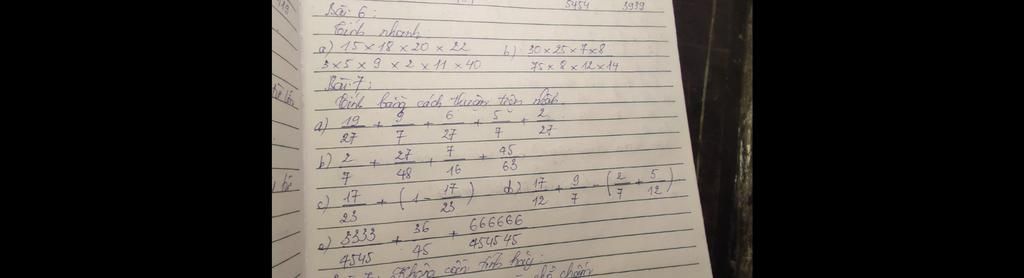 5454 3939
Bài 6:
Tính nhanh
a) 15 × 18 × 20 × 22 b) 30 × 25 × 7 × 8
3 × 5 × 9 × 2 × 11 × 40 75 × 8 × 12 × 14
Bài 7:
Tính bằng cách thuận tiện nhất.
a) 19/27 + 9/7 + 6/27 + 5/7 + 2/27
b) 2/7 + 27/48 + 7/16 + 45/63
c) 17/23 + (1 - 17/23) d) 17/12 + 9/7 - (2/7 + 5/12)
e) 3333/4545 + 36/45 + 666666/454545
Không cần tính hãy
chỗ chấm